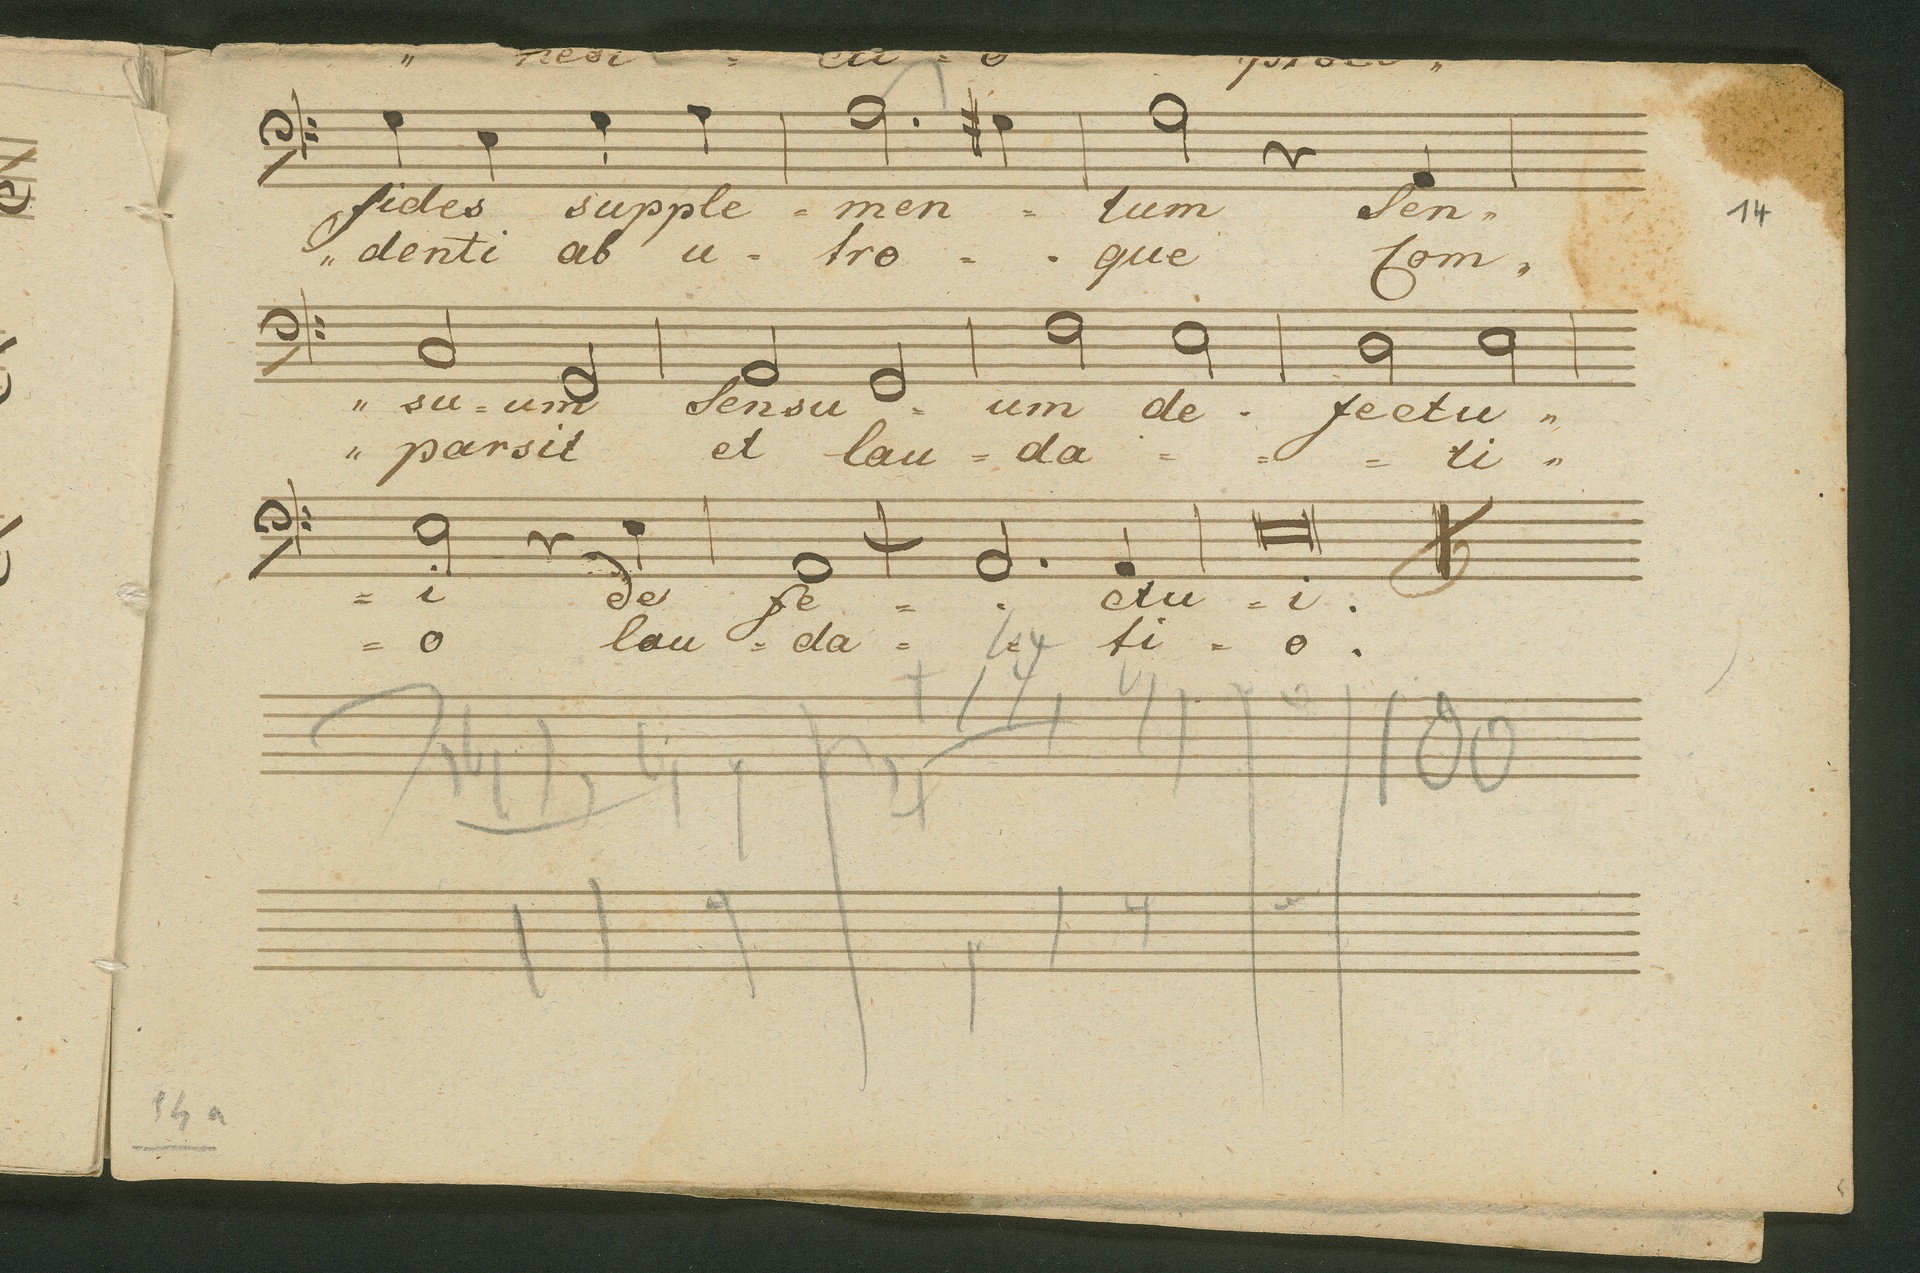 „ nedi = cti = o
fides supple = men = tum Sen„
14
„denti ab u - tro = - que Com„
„ su = um Sensu = um de - fectu „
„ parsit et lau = da = = = ti „
= i de fe = - ctu = i .
= o lau = da = = ti = o .
100
14 a